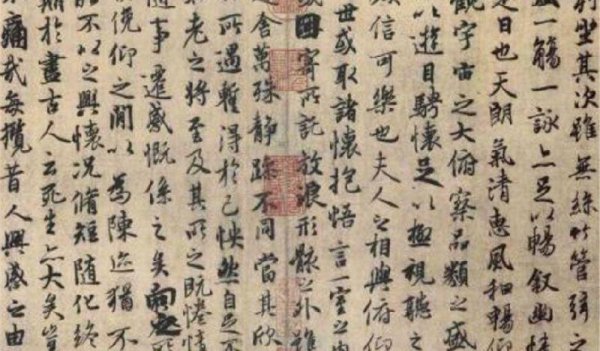 列坐其次雖無絲竹管弦之
一觴一詠亦足以暢敘幽情
是日也天朗氣清惠風和暢仰
觀宇宙之大俯察品類之盛
以遊目騁懷足以極視聽之
娛信可樂也夫人之相與俯仰
世或取諸懷抱悟言一室之內
或因寄所託放浪形骸之外雖
趣舍萬殊靜躁不同當其欣
所遇蹔得於己怏然自足不
老之將至及其所之既惓情
隨事遷感慨係之矣向之所
俛仰之閒以為陳迹猶不
能不以之興懷況脩短隨化終
期於盡古人云死生亦大矣豈
痛哉每攬昔人興感之由